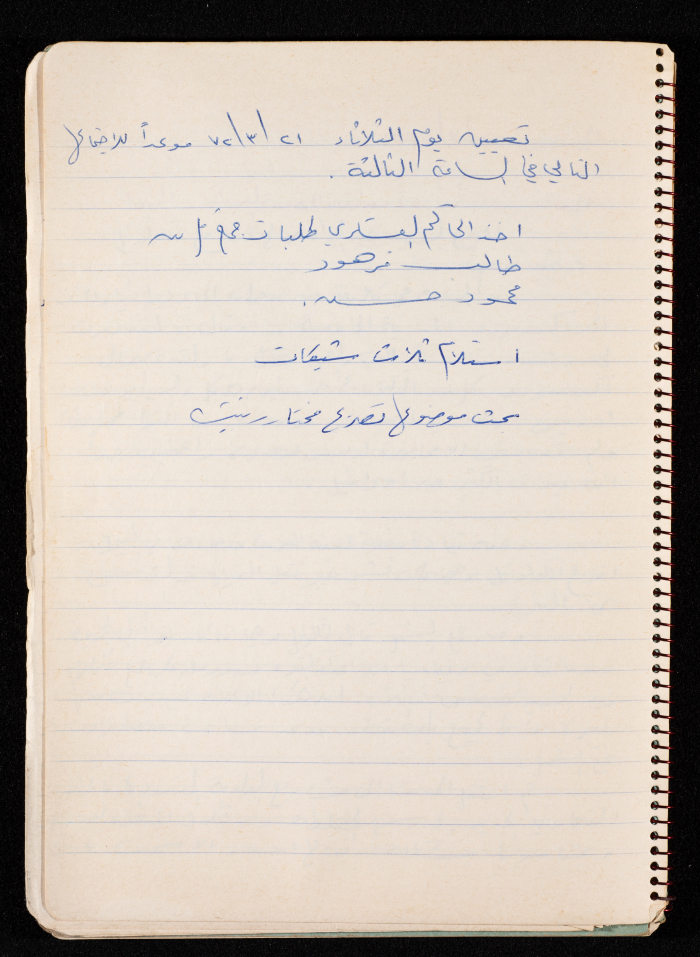 تعيين يوم الثلاثاء ٢١/٣/٧٢ موعداً للاجتماع
التالي في الساعة الثالثة .
اخذ الحاكم العسكري طلبات جمع
طالب فرهود
محمود حسن .
استلام ثلاث شيكات
بحث موضوع تصرع مختار رنتيس